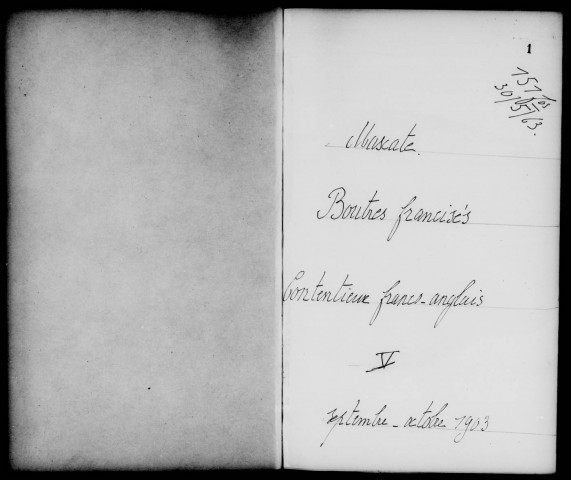 1
30/5/63.
Mascate.
Boutres francisés
Contentieux franco-anglais
V
septembre - octobre 1903